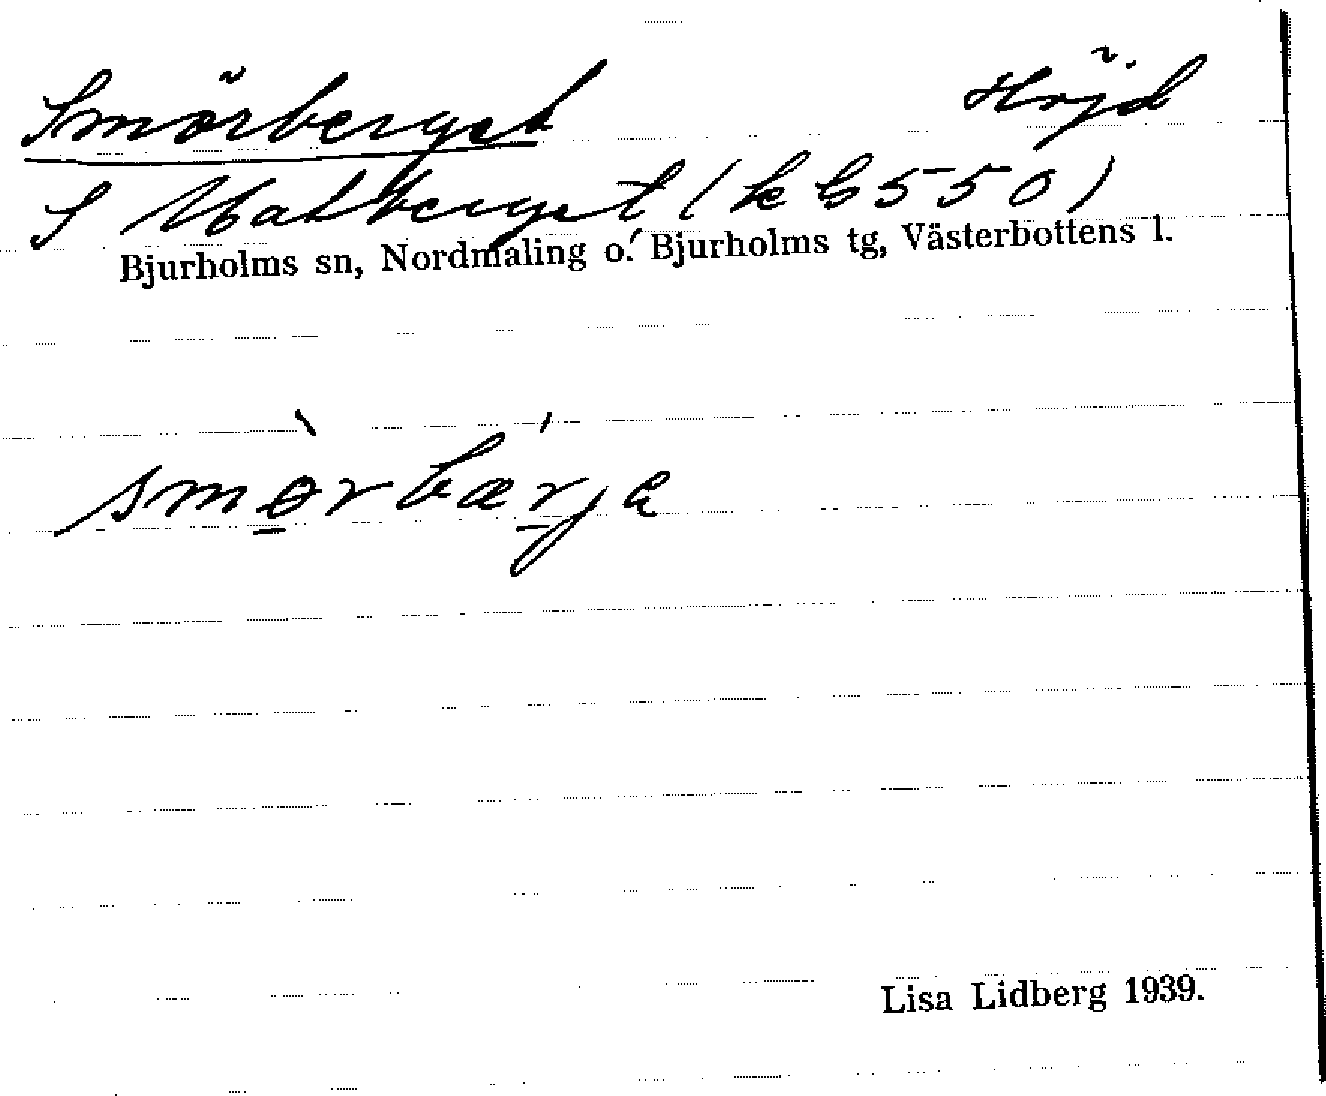 Smörberget Höjd
S Matberget (k G550)
Bjurholms sn, Nordmaling o. Bjurholms tg, Västerbottens l.
smòrbǽrja
Lisa Lidberg 1939.